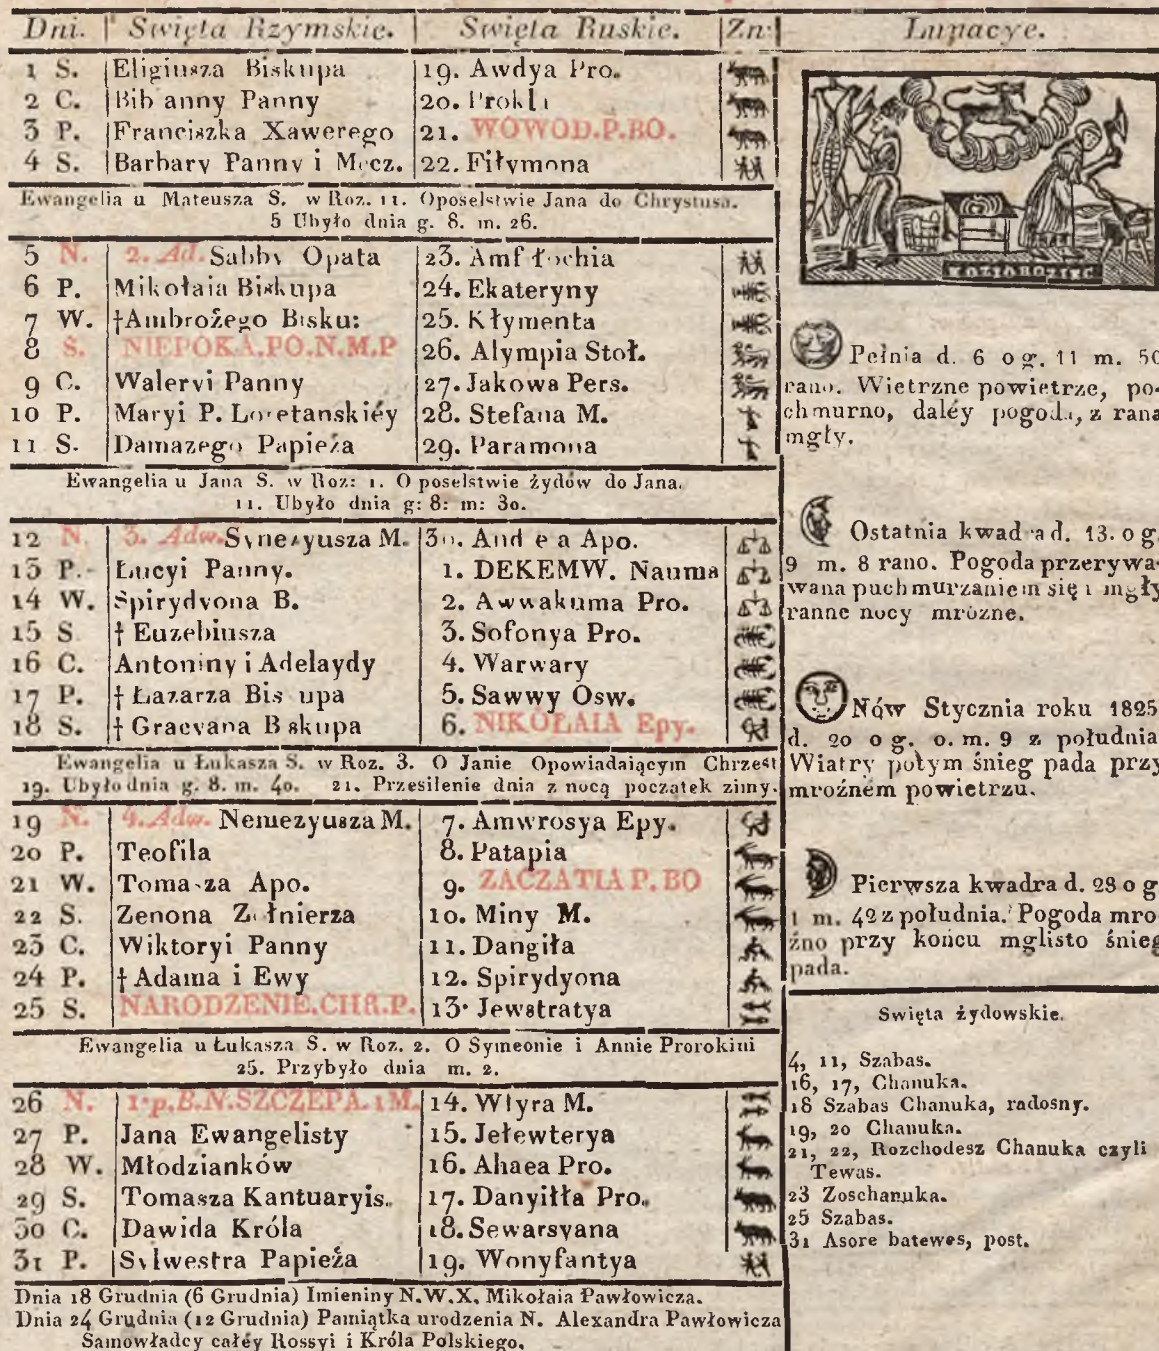 Dni. Swięta Rzymskie. Swięta Ruskie. Zn: Lunacye.
1 S. Eligiusza Biskupa 19. Awdya Pro.
2 C. Bib anny Panny 20. Prokla
3 P. Franciszka Xawerego 21. WOWOD.P.BO.
4 S. Barbary Panny i Mecz. 22. Fiłymona
Ewangelia u Mateusza S. w Roz. 11. Oposelstwie Jana do Chrystusa.
5 Ubyło dnia g. 8. m. 26.
5 N. 2. Ad. Sabby Opata 23. Amf łochia
6 P. Mikołaia Biskupa 24. Ekateryny
7 W. †Ambrożego Bisku: 25. Kłymenta
8 S. NIEPOKA.PO.N.M.P 26. Alympia Stoł.
9 C. Waleryi Panny 27. Jakowa Pers.
10 P. Maryi P. Loretanskiéy 28. Stefana M.
11 S. Damazego Papieża 29. Paramona
Ewangelia u Jana S. w Roz: 1. O poselstwie żydów do Jana.
11. Ubyło dnia g: 8: m: 30.
12 N. 3. Adw. Synezyusza M. 30. And e a Apo.
13 P. Łucyi Panny. 1. DEKEMW. Nauma
14 W. Spirydyona B. 2. Awwakuma Pro.
15 S † Euzebiusza 3. Sofonya Pro.
16 C. Antoniny i Adelaydy 4. Warwary
17 P. † Łazarza Bis upa 5. Sawwy Osw.
18 S. † Gracyana B skupa 6. NIKOŁAIA Epy.
Ewangelia u Łukasza S. w Roz. 3. O Janie Opowiadaiącym Chrzest
19. Ubyło dnia g. 8. m. 40. 21. Przesilenie dnia z nocą początek zimy.
19 N. 4. Adw. Nemezyusza M. 7. Amwrosya Epy.
20 P. Teofila 8. Patapia
21 W. Toma za Apo. 9. ZACZATIA P. BO
22 S. Zenona Żołnierza 10. Miny M.
23 C. Wiktoryi Panny 11. Dangiła
24 P. † Adama i Ewy 12. Spirydyona
25 S. NARODZENIE.CHR.P. 13. Jewstratya
Ewangelia u Łukasza S. w Roz. 2. O Symeonie i Annie Prorokini
25. Przybyło dnia m. 2.
26 N. 1. p.B.N.SZCZEPA.1M. 14. Wtyra M.
27 P. Jana Ewangelisty 15. Jełewterya
28 W. Młodzianków 16. Ahaea Pro.
29 S. Tomasza Kantuaryis. 17. Danyiłła Pro.
30 C. Dawida Króla 18. Sewarsyana
31 P. Sylwestra Papieża 19. Wonyfantya
Dnia 18 Grudnia (6 Grudnia) Imieniny N.W.X. Mikołaia Pawłowicza.
Dnia 24 Grudnia (12 Grudnia) Pamiątka urodzenia N. Alexandra Pawłowicza
Samowładcy całéy Rossyi i Króla Polskiego.
KOZIOROZIEC
Pełnia d. 6 o g. 11 m. 50
rano. Wietrzne powietrze, po-
chmurno, daléy pogoda, z rana
mgły.
Ostatnia kwad ra d. 13. o g.
9 m. 8 rano. Pogoda przerywa-
wana puchmurzaniem się i mgły
ranne nocy mrózne.
Nów Stycznia roku 1825
d. 20 o g. o. m. 9 z południa
Wiatry potym śnieg pada przy
mroźném powietrzu.
Pierwsza kwadra d. 28 o g
1 m. 42 z południa. Pogoda mro
źno przy koncu mglisto śnieg
pada.
Swięta żydowskie.
4, 11, Szabas.
16, 17, Chanuka.
18 Szabas Chanuka, radosny.
19, 20 Chanuka.
21, 22, Rozchodesz Chanuka czyli
Tewas.
23 Zoschanuka.
25 Szabas.
31 Asore batewes, post.